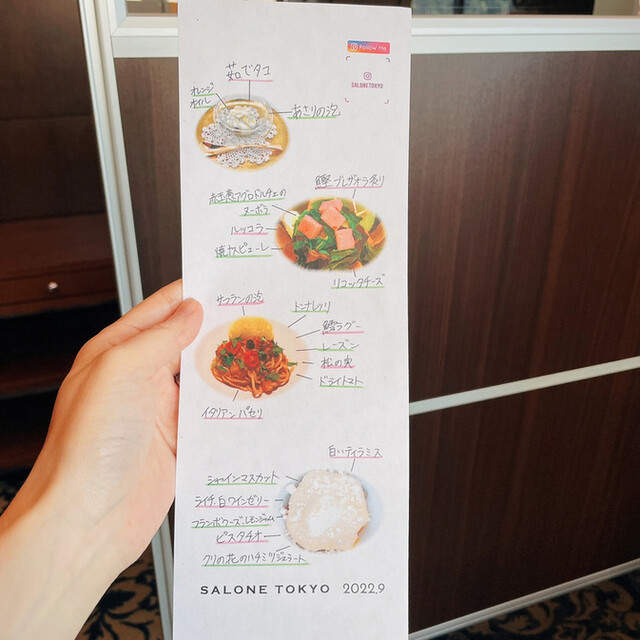 Follow Me
SALONETOKYO
茹でタコ
オレンジ
オイル
あさりの泡
鰹ブレザオラ炙り
赤玉葱アグロドルチェの
ヌーボラ
ルッコラ
焼ナスピューレ
リコッタチーズ
サフランの泡
トンナレッリ
鱈ラグー
レーズン
松の実
ドライトマト
イタリアンパセリ
白いティラミス
シャインマスカット
ライチ、白ワインゼリー
フランボワーズ、レモンジャム
ピスタチオ
クリの花のハチミツジェラート
SALONE TOKYO 2022.9